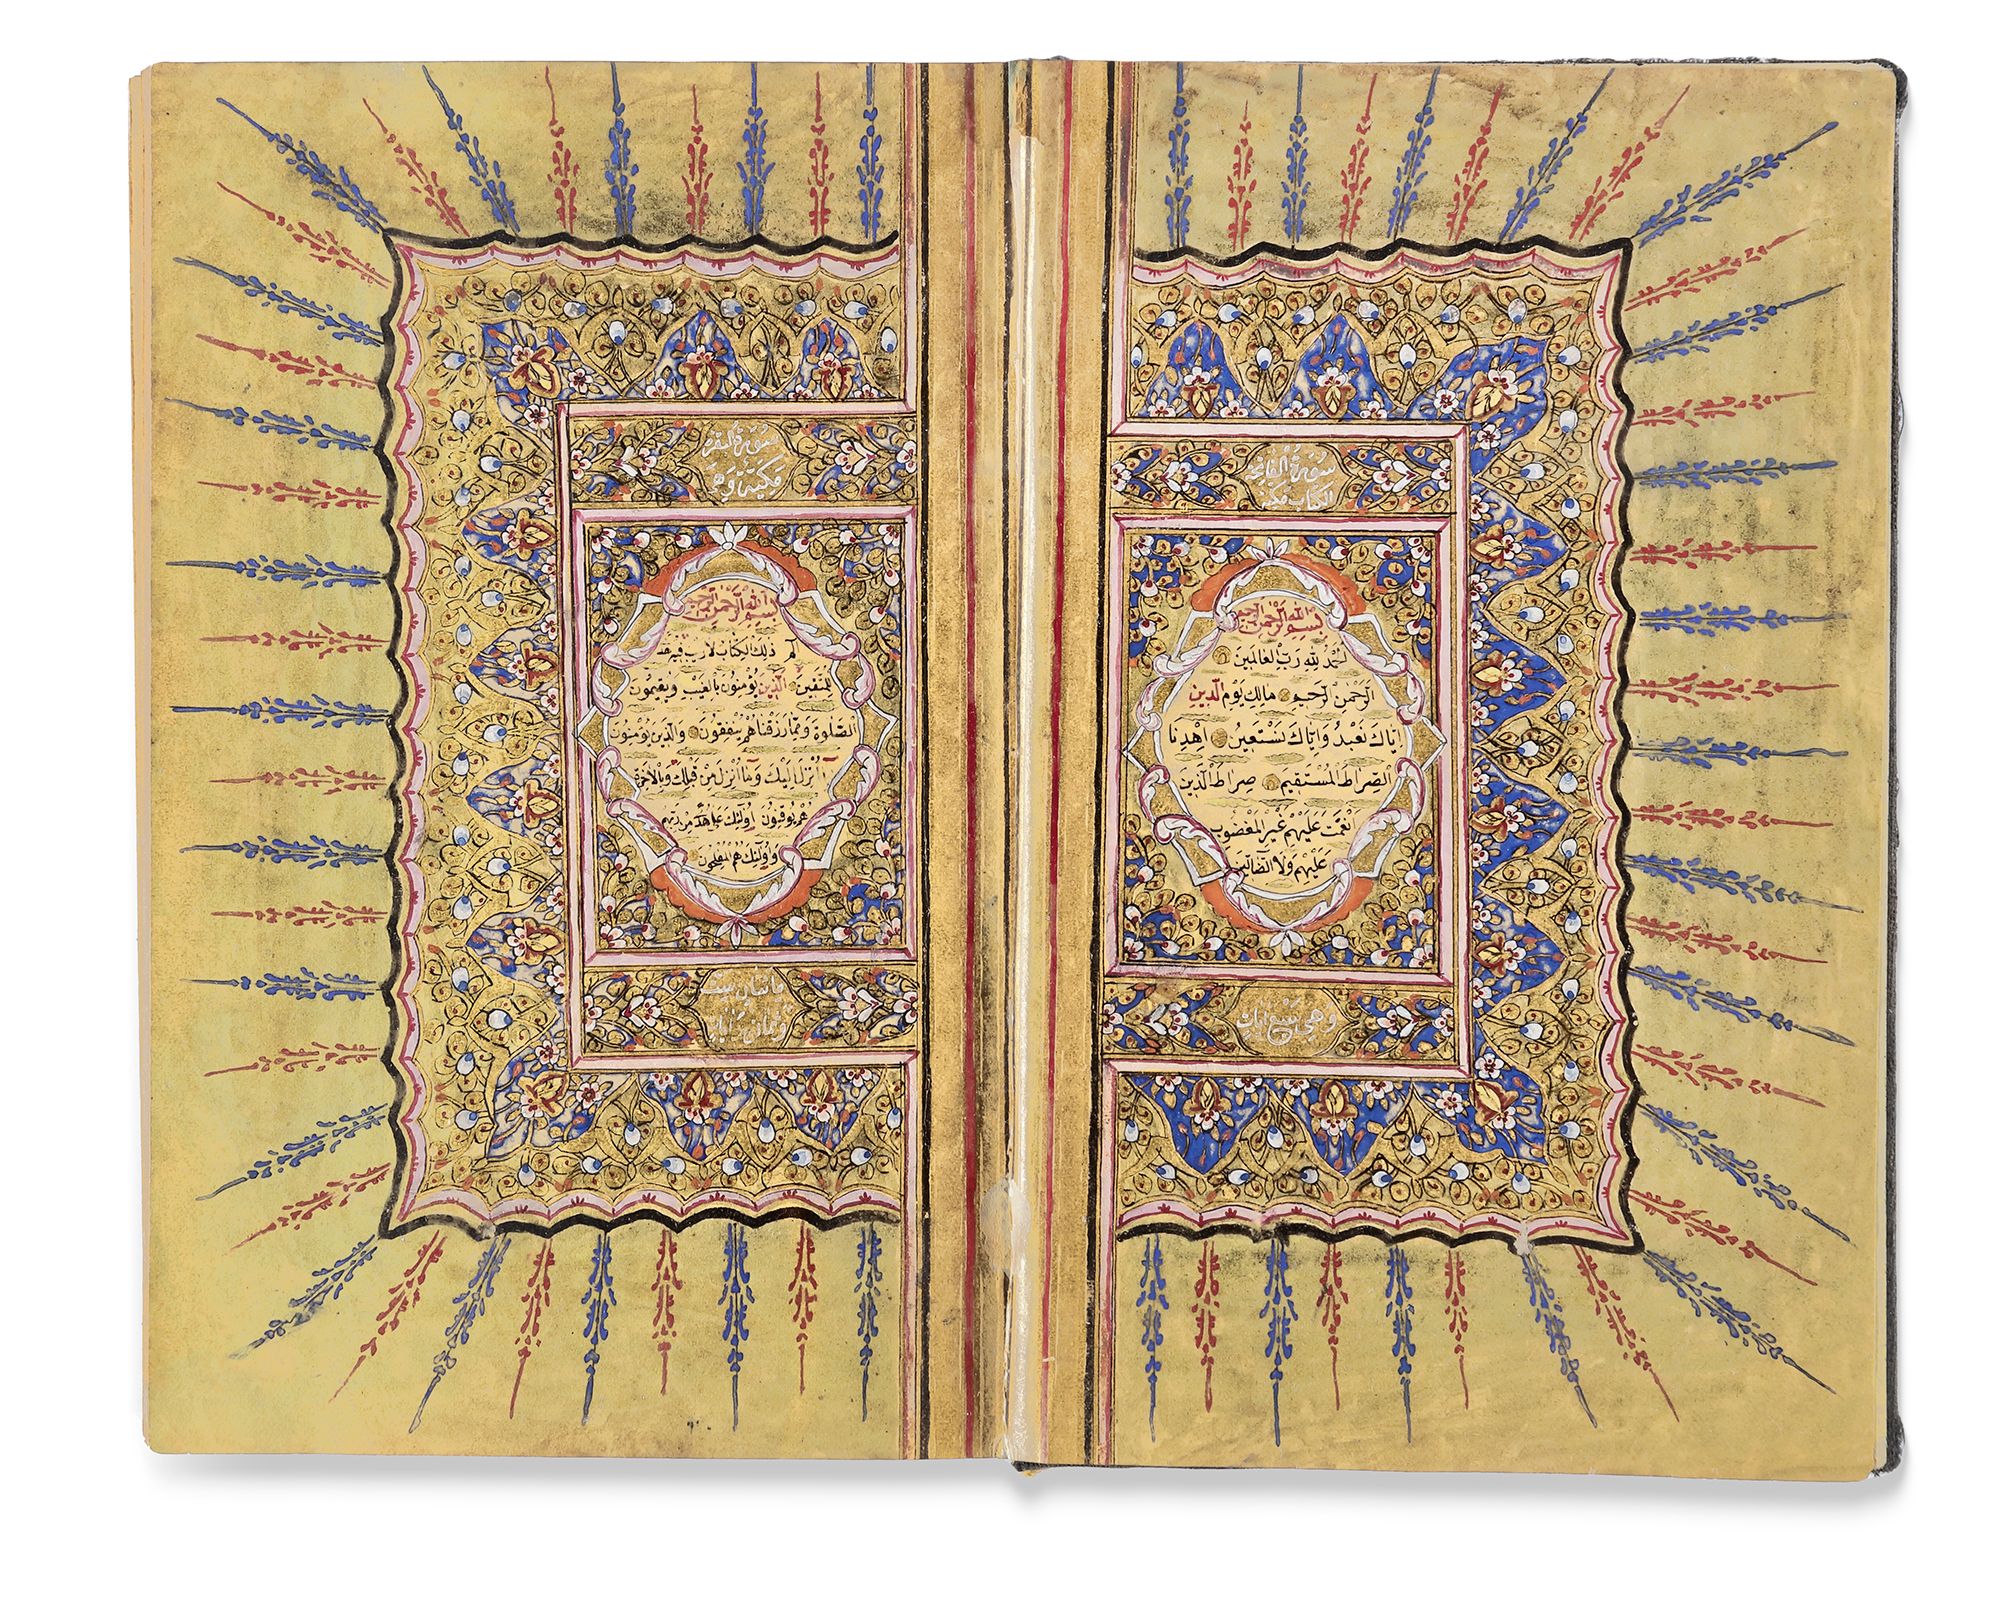 سورة الفاتحة
الكتاب مكية
بسم الله الرحمن الرحيم
الحمد لله رب العالمين
الرحمن الرحيم مالك يوم الدين
اياك نعبد واياك نستعين اهدنا
الصراط المستقيم صراط الذين
نعمت عليهم غير المغضوب
عليهم ولا الضالين
وهي سبع ايات
سورة البقرة
مكية وهى
بسم الله الرحمن الرحيم
الم ذلك الكتاب لا ريب فيه هد
للمتقين الذين يؤمنون بالغيب ويقيمون
الصلوة ومما رزقناهم ينفقون والذين يؤمنون
بما انزل اليك وما انزل من قبلك وبالاخرة
هم يوقنون اولئك على هدى من ربهم
واولئك هم المفلحون
مائتان ست
وثمان ايات